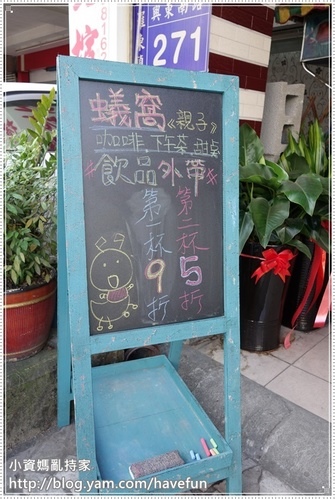 271
蟻窩《親子》
咖啡.下午茶.甜点
※飲品外帶※
第一杯9折
第二杯5折
小資媽亂持家
http://blog.yam.com/havefun